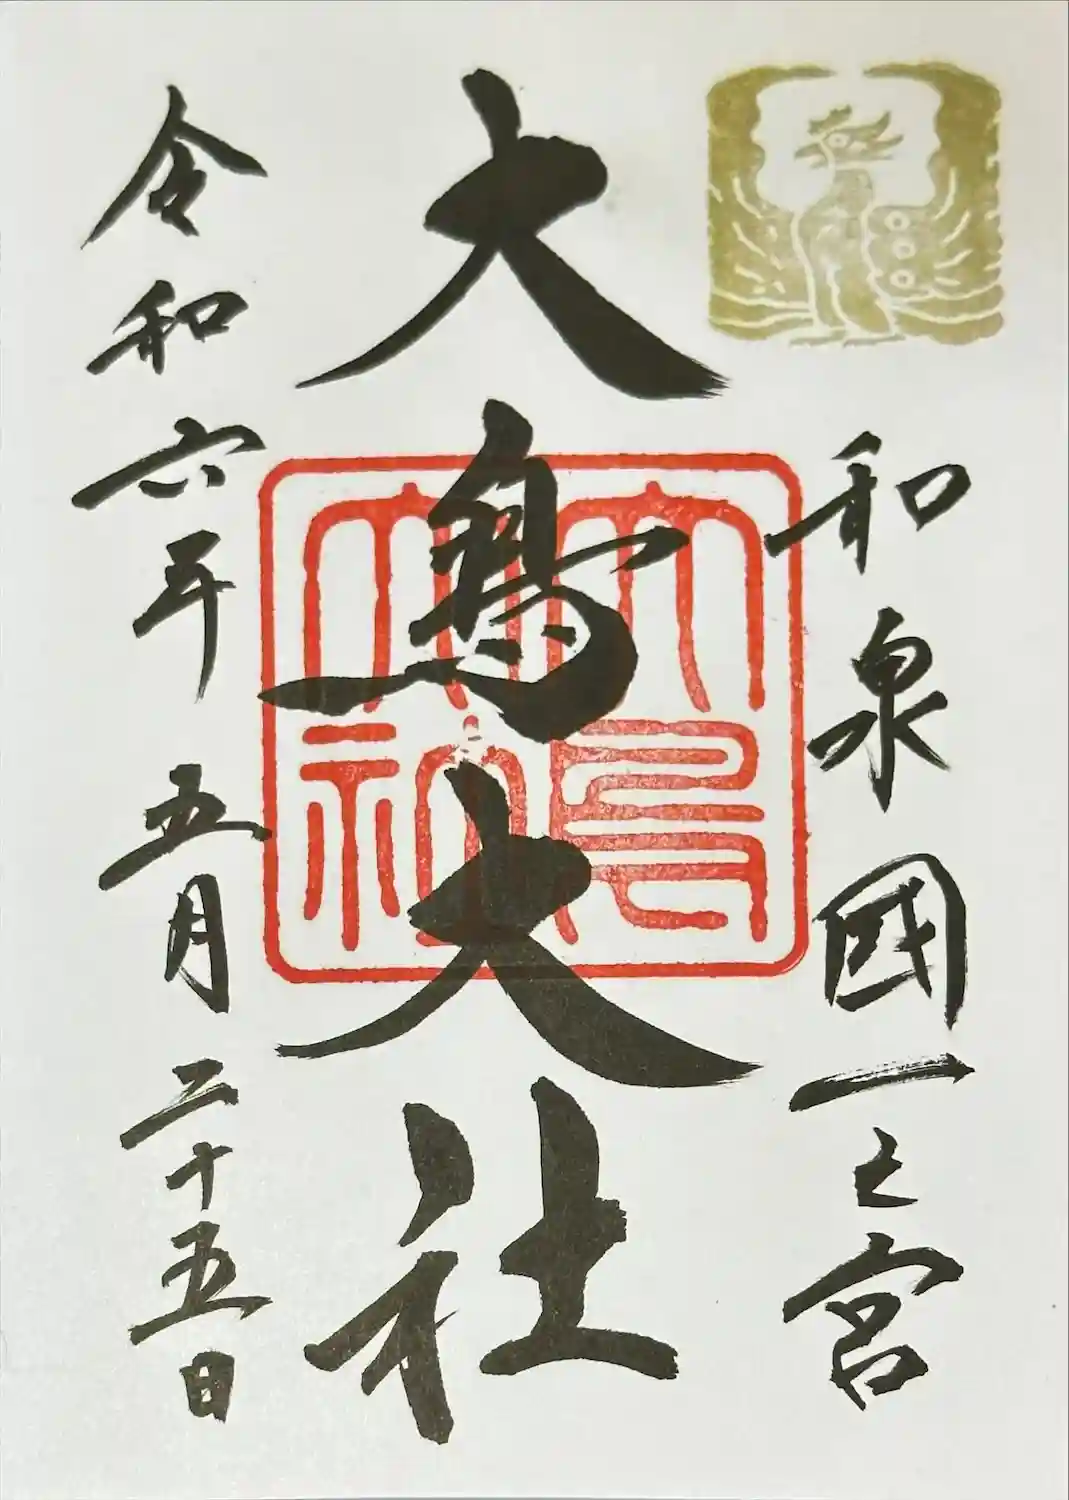 和泉國一之宮
大鳥大社
大鳥大社
令和六年五月二十五日